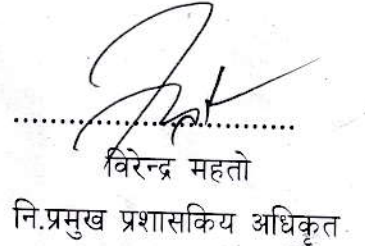 विरेन्द्र महतो
नि.प्रमुख प्रशासकिय अधिकृत